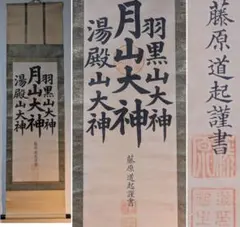 羽黒山大神
月山大神
湯殿山大神
羽黒山大神
月山大神
湯殿山大神
藤原道起謹書
藤原道起謹書